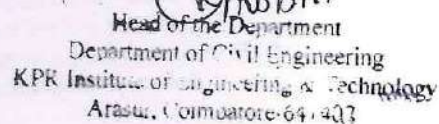 Head of the Department
Department of Civil Engineering
KPR Institute of Engineering & Technology
Arasur, Coimbatore-641 407